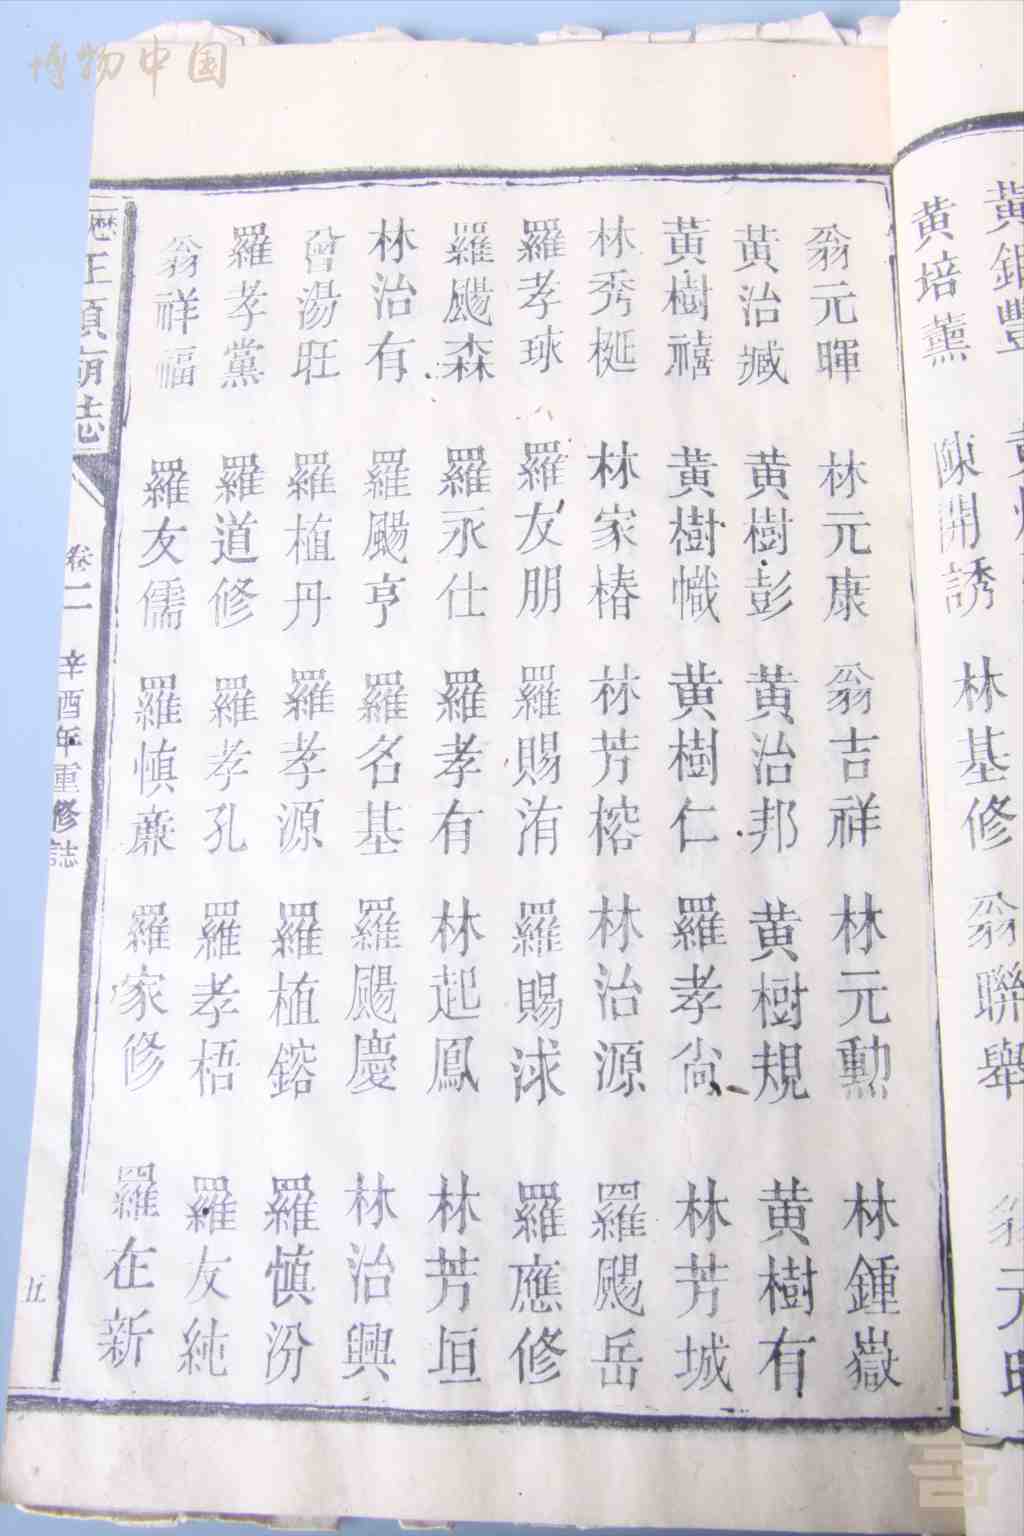 博物中国
黃培薰 陳開誘 林基修 翁聯舉
翁元暉 林元康 翁吉祥 林元勳 林鍾嶽
黃治臧 黃樹彭 黃治邦 黃樹規 黃樹有
黃樹禧 黃樹幟 黃樹仁 羅孝尚 林芳城
林秀梴 林家椿 林芳榕 林治源 羅颺岳
羅孝球 羅友朋 羅賜洧 羅賜浗 羅應修
羅颺森 羅永仕 羅孝有 林起鳳 林芳垣
林治有 羅颺亨 羅名基 羅颺慶 林治興
曾湯旺 羅植丹 羅孝源 羅植鎔 羅慎汾
羅孝黨 羅道修 羅孝孔 羅孝梧 羅友純
翁祥福 羅友儒 羅慎 羅家修 羅在新
正順廟誌 卷二 辛酉年重修誌 五